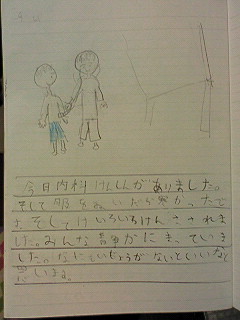 今日内科けんしんがありました。
そして服をぬいだら寒かったで
す。そして いろいろけんさされま
した。みんな 静かに ていき
した。なにもいじょうがないといいなと
思います。